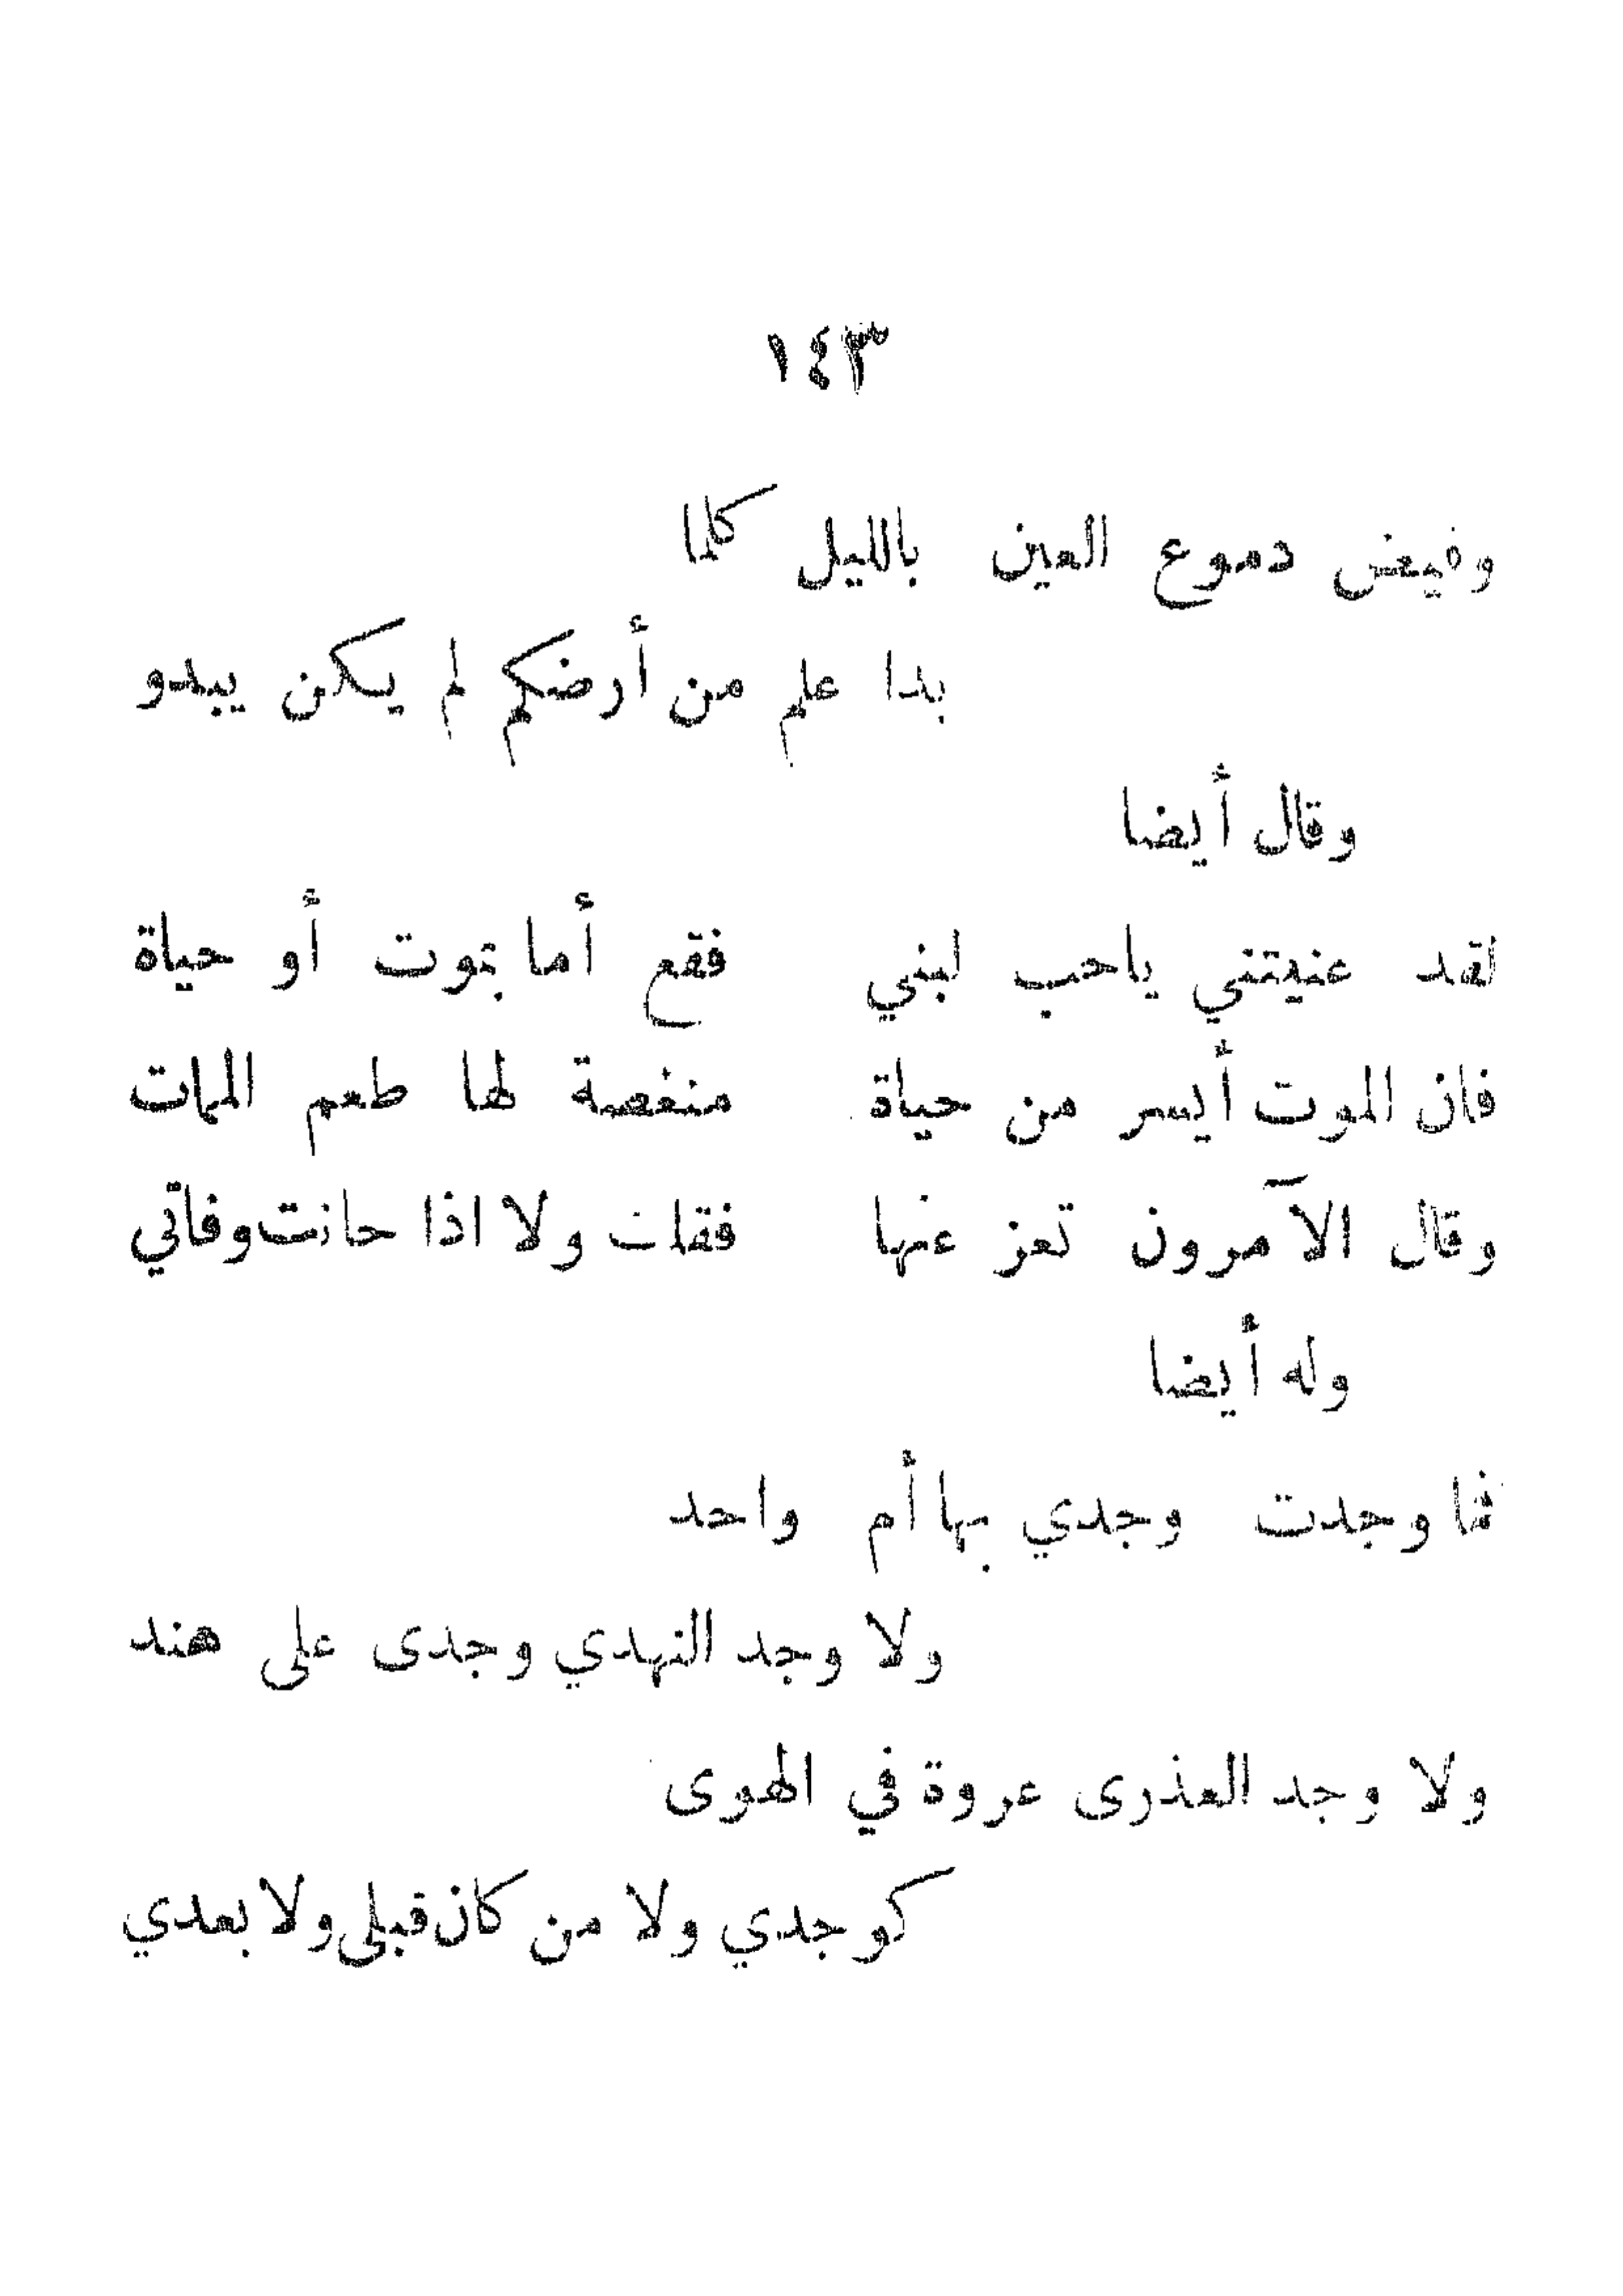 ١٤٣
وفيض دموع العين بالليل كلما
بدا علم من أرضكم لم يكن يبدو
وقال أيضا
لقد عنيتني ياحب لبني فقع أما بموت أو حياة
فان الموت أيسر من حياة منغصة لها طعم الممات
وقال الآمرون تعز عنها فقلت ولا اذا حانت وفاتي
وله أيضا
فما وجدت وجدي بها أم واحد
ولا وجد النهدي وجدى على هند
ولا وجد العذرى عروة في الهوى
كوجدي ولا من كان قبلي ولا بعدي